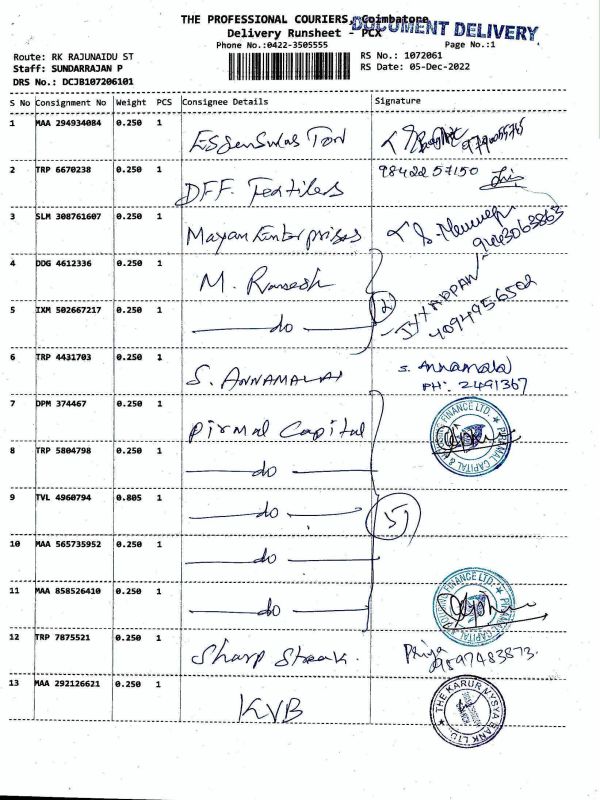 THE PROFESSIONAL COURIERS, Coimbatore
DOCUMENT DELIVERY
Delivery Runsheet - PCX
Phone No.:0422-3505555
Page No.:1
Route: RK RAJUNAIDU ST
RS No.: 1072061
Staff: SUNDARRAJAN P
RS Date: 05-Dec-2022
DRS No.: DCJB107206101
S No Consignment No Weight PCS Consignee Details Signature
1 MAA 294934084 0.250 1
2 TRP 6670238 0.250 1 DFF. Textilers 98422 57150
3 SLM 308761607 0.250 1 Mayan Enterprises 9443063863
4 DDG 4612336 0.250 1 M. Ramesh
5 IXM 502667217 0.250 1 do 2 4094956502
6 TRP 4431703 0.250 1 S. ANNAMALAI S. Annamalai
PH: 2491367
7 DPM 374467 0.250 1 Pirmal Capital PIRAMAL CAPITAL & HOUSING FINANCE LTD. ★
8 TRP 5804798 0.250 1 do
9 TVL 4960794 0.805 1 do 5
10 MAA 565735952 0.250 1 do
11 MAA 858526410 0.250 1 do PIRAMAL CAPITAL & HOUSING FINANCE LTD. ★
12 TRP 7875521 0.250 1 Sharp Streak. Priya
9597483873.
13 MAA 292126621 0.250 1 KVB ★ THE KARUR VYSYA BANK LTD.